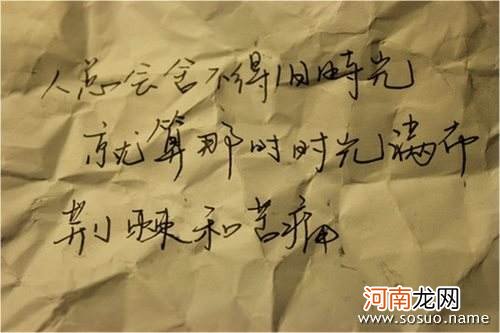 人总会舍不得旧時光
就算那时时光满布
荆棘和苦痛
河南龙网
www.sosuo.name